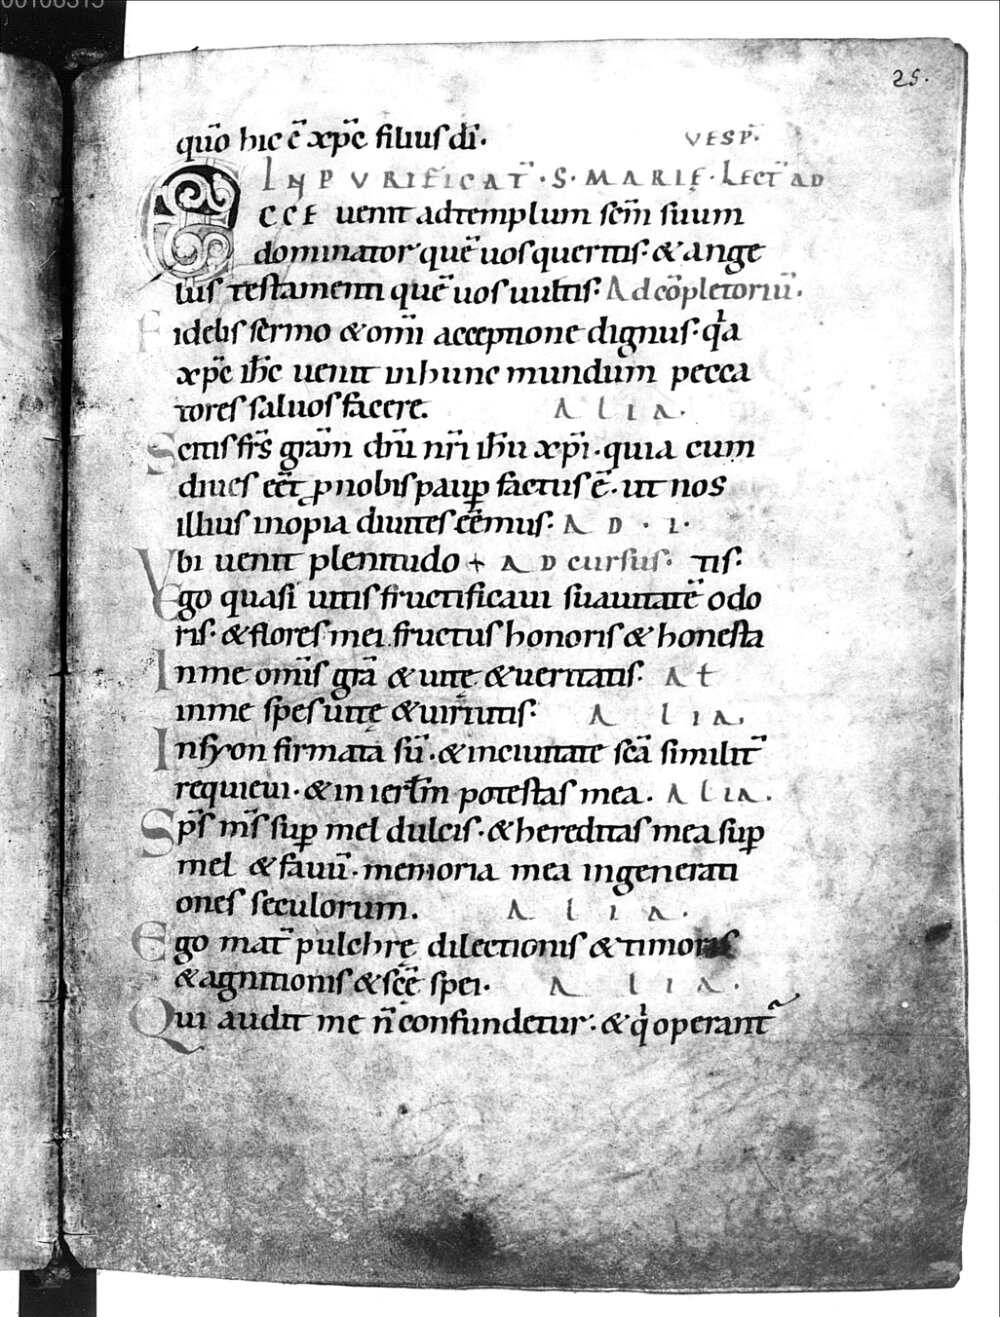 00106315
25.
quō hic ē xp̄c filius dī. VESP̄.
IN PVRIFICAT̄. S. MARIĘ. Lect̄ AD
ECCE uenit ad templum sc̄m suum
dominator quē uos queritis. & ange
lus testamenti quē uos uultis. Ad cōpletoriū.
Fidelis sermo & om̄i acceptione dignus. qͥa
xp̄c ih̄c uenit in hunc mundum pecca
tores saluos facere. ALIA.
Scitis fr̄s grām dn̄i nr̄i ih̄u xp̄i. quia cum
diues eēt ꝓ nobis paup̄ factus ē. ut nos
illius inopia diuites eēmus. AD. I.
Vbi uenit plenitudo + AD cursus. tis.
Ego quasi uitis fructificaui suauitatē odo
ris. & flores mei fructus honoris & honesta
In me om̄is grā & uitę & ueritatis. At
in me spes uitę & uirtutis. ALIA.
In syon firmata sū. & in ciuitate sc̄a similit̄
requieui. & in ierłm potestas mea. ALIA.
Sp̄s m̄s sup̄ mel dulcis. & hereditas mea sup̄
mel & fauū. memoria mea in generati
ones seculorum. ALIA.
Ego mat̄ pulchrę dilectionis & timoris
& agnitionis & sc̄ę spei. ALIA.
Qui audit me n̄ confundetur. & qͥ operant̄